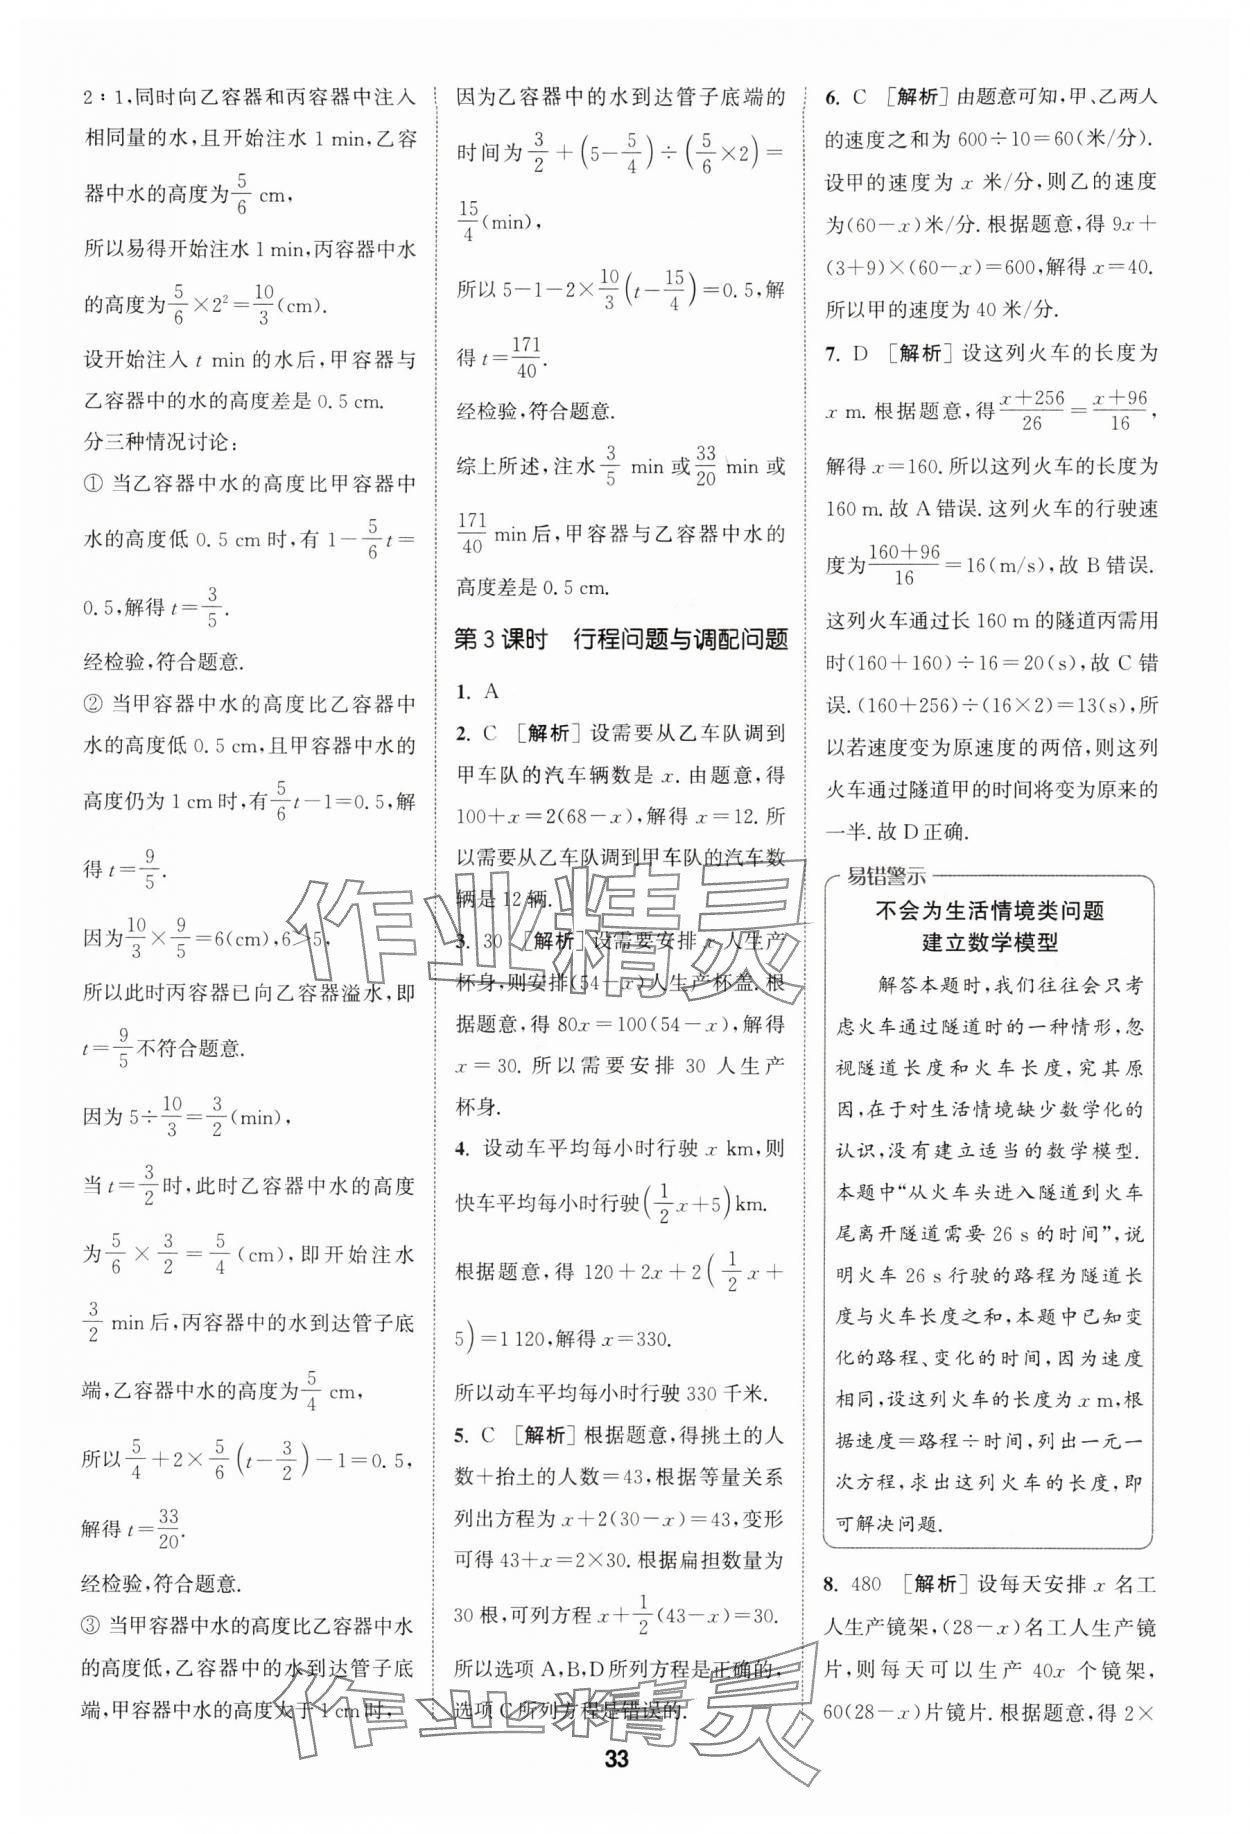 2∶1,同时向乙容器和丙容器中注入
相同量的水,且开始注水 1 min,乙容
器中水的高度为5/6 cm,
所以易得开始注水 1 min,丙容器中水
的高度为5/6×2²=10/3(cm).
设开始注入 t min 的水后,甲容器与
乙容器中的水的高度差是 0.5 cm.
分三种情况讨论:
① 当乙容器中水的高度比甲容器中
水的高度低 0.5 cm 时,有 1-5/6t=
0.5,解得 t=3/5.
经检验,符合题意.
② 当甲容器中水的高度比乙容器中
水的高度低 0.5 cm,且甲容器中水的
高度仍为 1 cm 时,有5/6t-1=0.5,解
得 t=9/5.
因为10/3×9/5=6(cm),6>5,
所以此时丙容器已向乙容器溢水,即
t=9/5不符合题意.
因为 5÷10/3=3/2(min),
当 t=3/2时,此时乙容器中水的高度
为5/6×3/2=5/4(cm),即开始注水
3/2 min 后,丙容器中的水到达管子底
端,乙容器中水的高度为5/4 cm,
所以5/4+2×5/6(t-3/2)-1=0.5,
解得 t=33/20.
经检验,符合题意.
③ 当甲容器中水的高度比乙容器中水
的高度低,乙容器中的水到达管子底
端,甲容器中水的高度大于 1 cm 时,
因为乙容器中的水到达管子底端的
时间为3/2+(5-5/4)÷(5/6×2)=
15/4(min),
所以 5-1-2×10/3(t-15/4)=0.5,解
得 t=171/40.
经检验,符合题意.
综上所述,注水3/5 min 或33/20 min 或
171/40 min 后,甲容器与乙容器中水的
高度差是 0.5 cm.
第 3 课时 行程问题与调配问题
1. A
2. C [解析]设需要从乙车队调到
甲车队的汽车辆数是 x. 由题意,得
100+x=2(68-x),解得 x=12. 所
以需要从乙车队调到甲车队的汽车数
辆是 12 辆.
3. 30 [解析]设需要安排 x 人生产
杯身,则安排(54-x)人生产杯盖. 根
据题意,得 80x=100(54-x),解得
x=30. 所以需要安排 30 人生产
杯身.
4. 设动车平均每小时行驶 x km,则
快车平均每小时行驶(1/2x+5)km.
根据题意,得 120+2x+2(1/2x+
5)=1 120,解得 x=330.
所以动车平均每小时行驶 330 千米.
5. C [解析]根据题意,得挑土的人
数+抬土的人数=43,根据等量关系
列出方程为 x+2(30-x)=43,变形
可得 43+x=2×30. 根据扁担数量为
30 根,可列方程 x+1/2(43-x)=30.
所以选项 A,B,D 所列方程是正确的,
选项 C 所列方程是错误的.
6. C [解析]由题意可知,甲、乙两人
的速度之和为 600÷10=60(米/分).
设甲的速度为 x 米/分,则乙的速度
为(60-x)米/分. 根据题意,得 9x+
(3+9)×(60-x)=600,解得 x=40.
所以甲的速度为 40 米/分.
7. D [解析]设这列火车的长度为
x m. 根据题意,得(x+256)/26=(x+96)/16,
解得 x=160. 所以这列火车的长度为
160 m. 故 A 错误. 这列火车的行驶速
度为(160+96)/16=16(m/s),故 B 错误.
这列火车通过长 160 m 的隧道丙需用
时(160+160)÷16=20(s),故 C 错
误. (160+256)÷(16×2)=13(s),所
以若速度变为原速度的两倍,则这列
火车通过隧道甲的时间将变为原来的
一半. 故 D 正确.
易错警示
不会为生活情境类问题
建立数学模型
解答本题时,我们往往会只考
虑火车通过隧道时的一种情形,忽
视隧道长度和火车长度,究其原
因,在于对生活情境缺少数学化的
认识,没有建立适当的数学模型.
本题中“从火车头进入隧道到火车
尾离开隧道需要 26 s 的时间”,说
明火车 26 s 行驶的路程为隧道长
度与火车长度之和,本题中已知变
化的路程、变化的时间,因为速度
相同,设这列火车的长度为 x m,根
据速度=路程÷时间,列出一元一
次方程,求出这列火车的长度,即
可解决问题.
8. 480 [解析]设每天安排 x 名工
人生产镜架,(28-x)名工人生产镜
片,则每天可以生产 40x 个镜架,
60(28-x)片镜片. 根据题意,得 2×
33
作业精灵
作业精灵